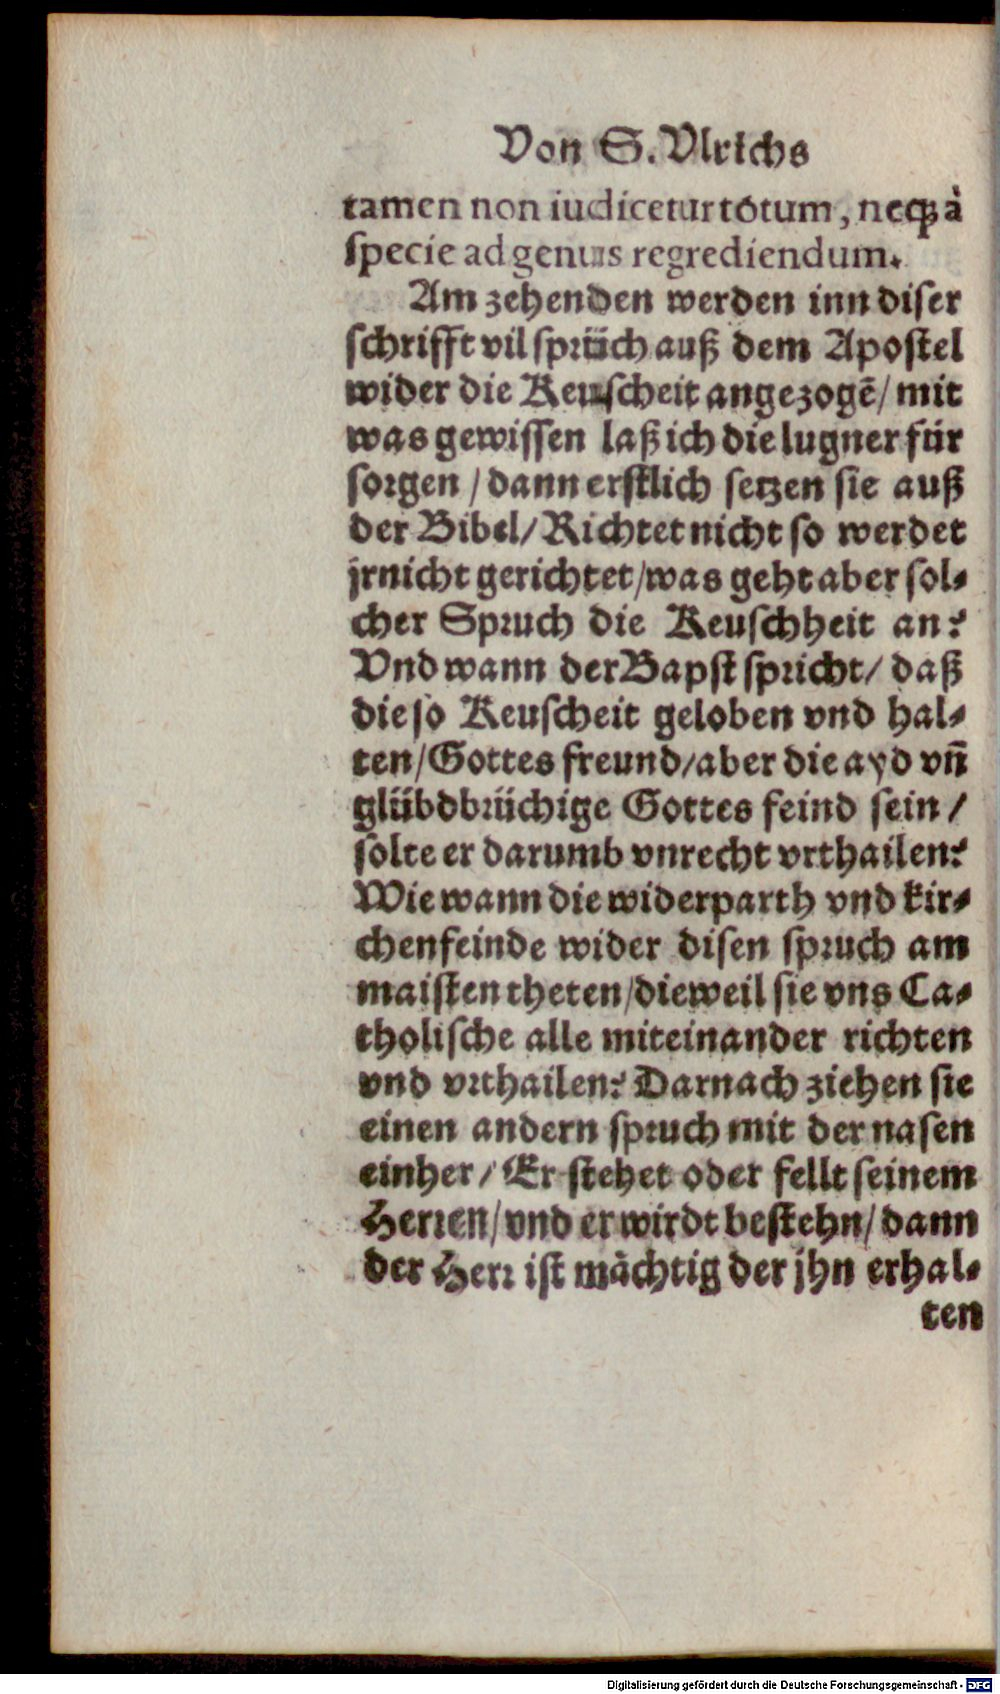 Von S. Vlrichs
tamen non iudicetur totum, neq; à
specie ad genus regrediendum.
Am zehenden werden inn diser
schrifft vil sprüch auß dem Apostel
wider die Keuscheit angezogẽ/ mit
was gewissen laß ich die lugner für
sorgen / dann erstlich setzen sie auß
der Bibel/ Richtet nicht so werdet
jr nicht gerichtet/was geht aber sol⸗
cher Spruch die Keuschheit an?
Vnd wann der Bapst spricht/ daß
die so Keuscheit geloben vnd hal⸗
ten/Gottes freund/aber die ayd vñ
glübdbrüchige Gottes feind sein /
solte er darumb vnrecht vrthailen?
Wie wann die widerparth vnd kir⸗
chenfeinde wider disen spruch am
maisten theten/dieweil sie vns Ca⸗
tholische alle miteinander richten
vnd vrthailen? Darnach ziehen sie
einen andern spruch mit der nasen
einher / Er stehet oder fellt seinem
Herren/vnd er wirdt bestehn/ dann
der Herr ist mächtig der jhn erhal⸗
ten
Digitalisierung gefördert durch die Deutsche Forschungsgemeinschaft - DFG